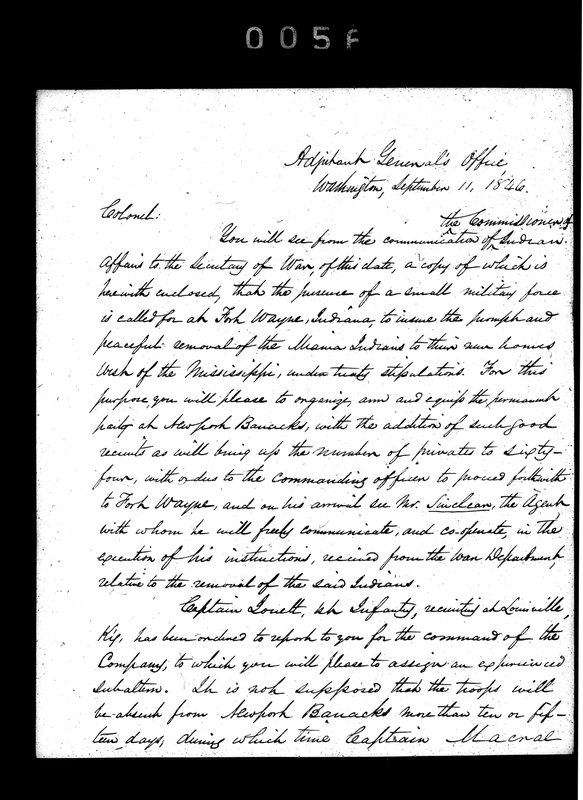 005
Adjutant General's Office
Washington, September 11, 1846.
Colonel:
the Commissioner of
You will see from the communication of Indian
Affairs to the Secretary of War, of this date, a copy of which is
herewith enclosed, that the presence of a small military force
is called for at Fort Wayne, Indiana, to insure the prompt and
peaceful removal of the Miami Indians to their new homes
West of the Mississippi, under treaty stipulations. For this
purpose you will please to organize, arm and equip the permanent
party at Newport Barracks, with the addition of such good
recruits as will bring up the number of privates to sixty-
four, with orders to the commanding officer to proceed forthwith
to Fort Wayne, and on his arrival see Mr. Sinclear, the Agent
with whom he will freely communicate, and co-operate, in the
execution of his instructions, received from the War Department,
relative to the removal of the said Indians.
Captain Infantry, recruiting at Louisville,
Ky, has been ordered to report to you for the command of the
Company, to which you will please to assign an experienced
subaltern. It is not supposed that the troops will
be absent from Newport Barracks more than ten or fif-
teen days, during which time Captain Macrae